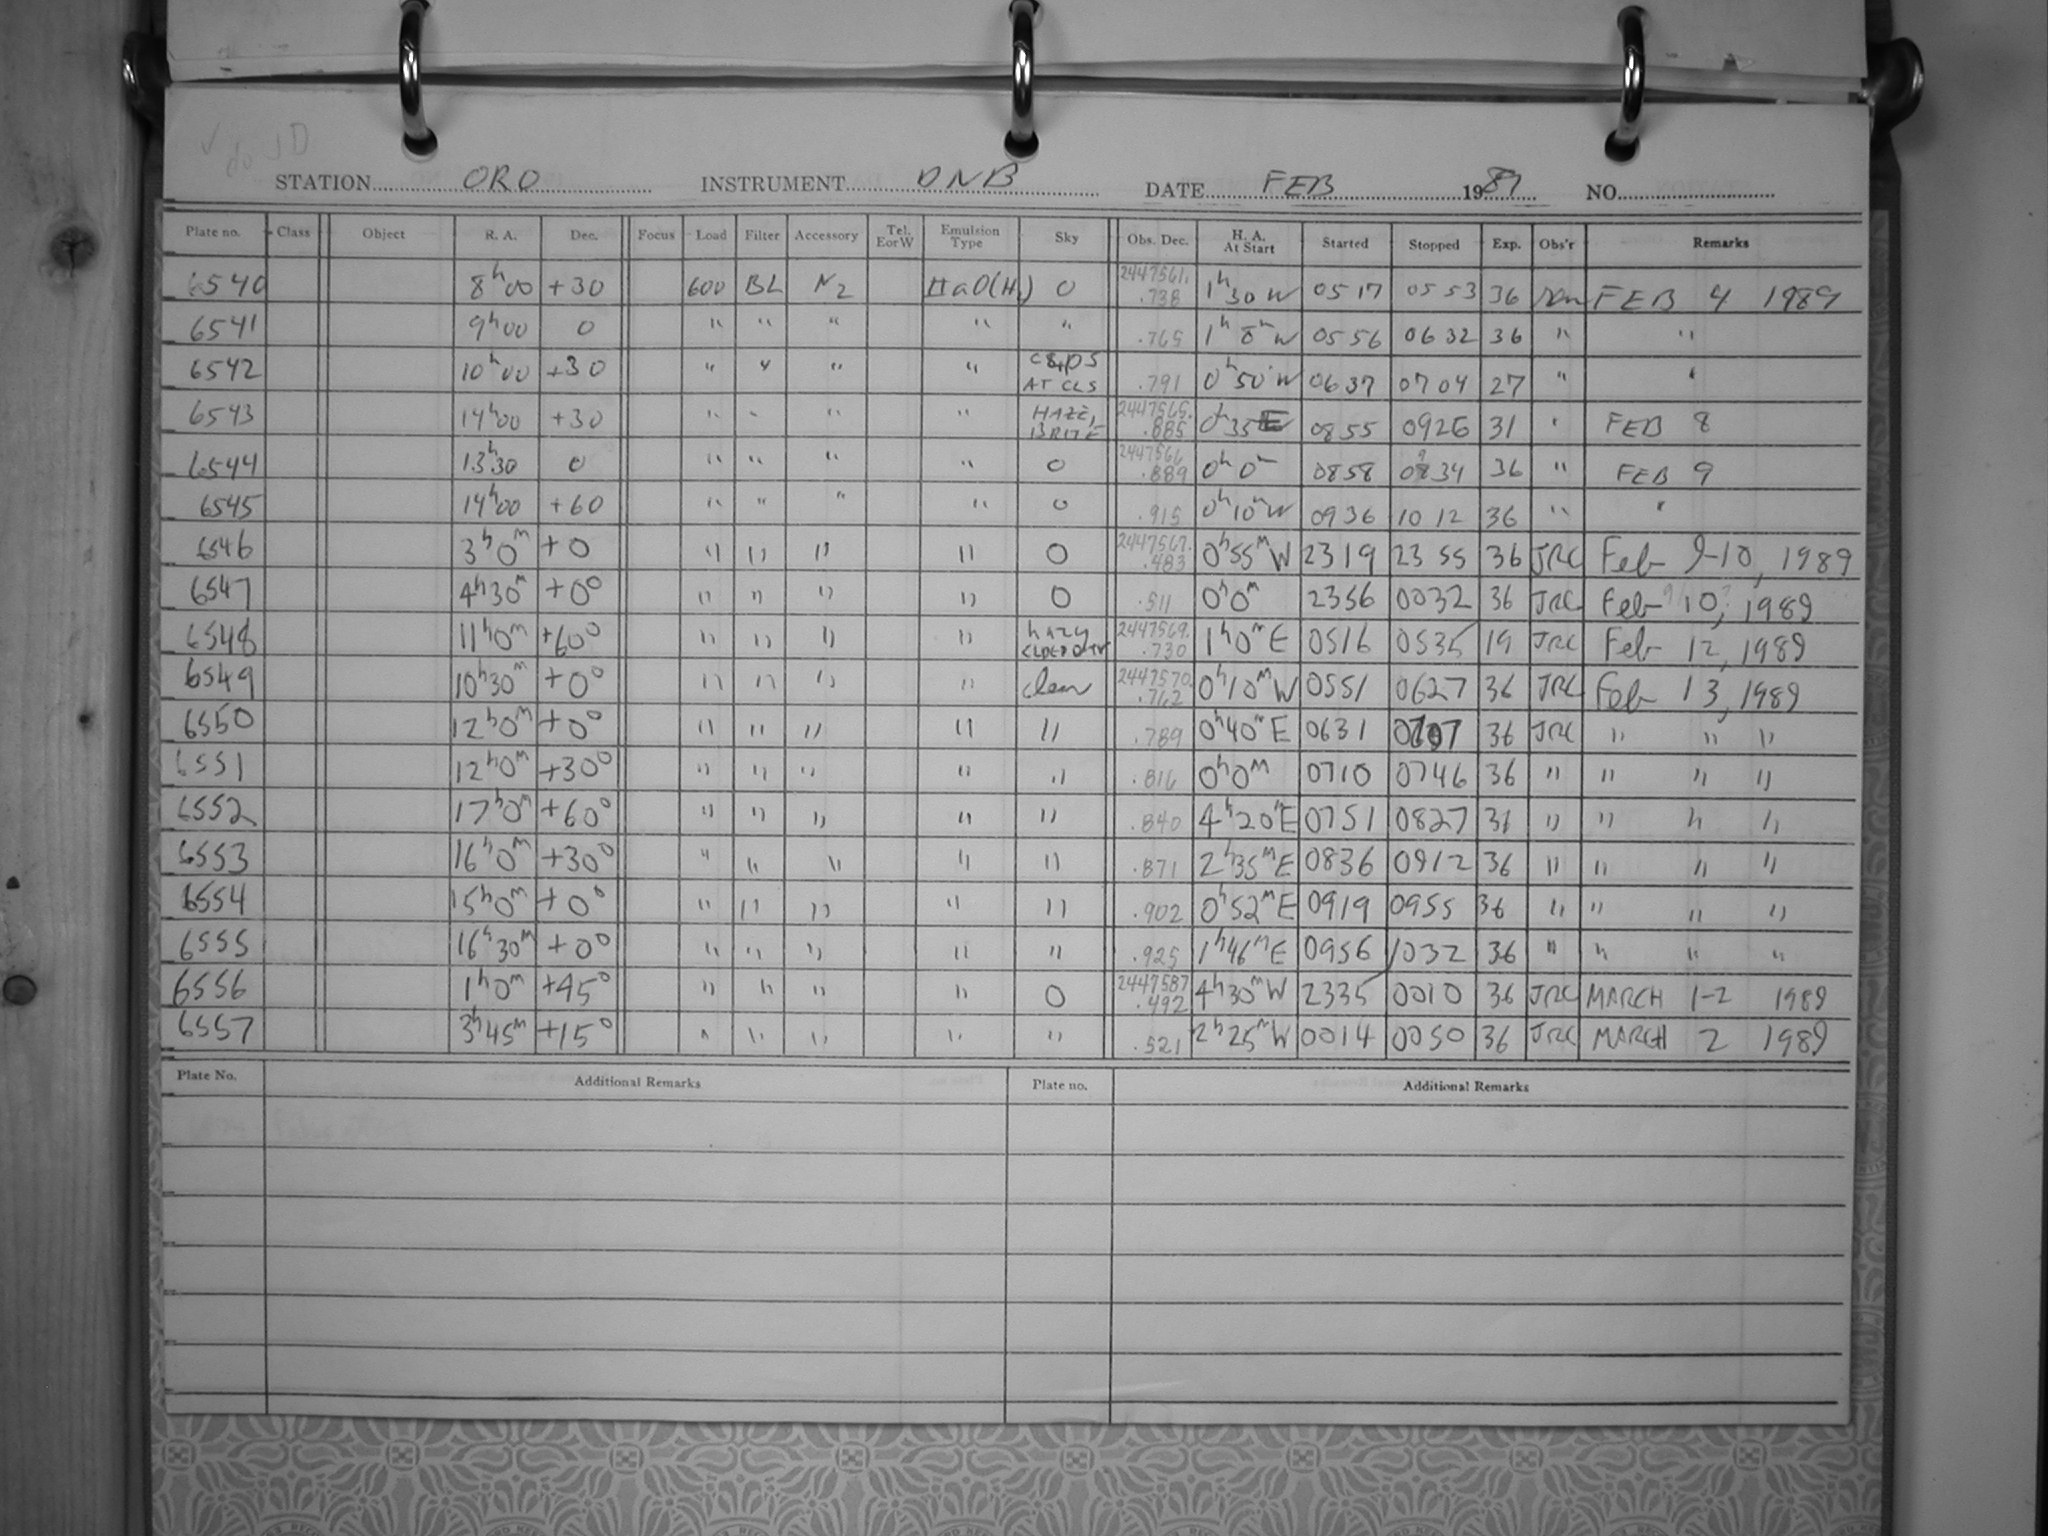 √ do JD
STATION ORO INSTRUMENT DNB DATE FEB 1989 NO.
Plate no. Class Object R. A. Dec. Focus Load Filter Accessory Tel. E or W Emulsion Type Sky Obs. Dec. H. A. At Start Started Stopped Exp. Obs'r Remarks
6540 8h00 +30 600 BL N2 IIaO(H2) 0 2447561. .738 1h30 W 0517 0553 36 FEB 4 1989
6541 9h00 0 " " " " " .765 1h 8m W 0556 0632 36 " "
6542 10h00 +30 " " " " AT CLS .791 0h50 W 0637 0704 27 " "
6543 14h00 +30 " " " " HAZE, BRITE 2447565. .885 0h35 E 0855 0926 31 " FEB 8
6544 13h30 0 " " " " 0 2447566. .889 0h 0m 0858 0934 36 " FEB 9
6545 14h00 +60 " " " " 0 .915 0h10m W 0936 1012 36 " "
6546 3h0m +0 " " " " 0 2447567. .483 0h55m W 2319 2355 36 JRC Feb 9-10, 1989
6547 4h30m +0° " " " " 0 .511 0h0m 2356 0032 36 JRC Feb 10, 1989
6548 11h0m +60° " " " " hazy 2447569. .730 1h0m E 0516 0535 19 JRC Feb 12, 1989
6549 10h30m +0° " " " " clear 2447570. .762 0h10m W 0551 0627 36 JRC Feb 13, 1989
6550 12h0m +0° " " " " " .789 0h40m E 0631 0707 36 JRC " " "
6551 12h0m +30° " " " " " .816 0h0m 0710 0746 36 " " " "
6552 17h0m +60° " " " " " .840 4h20m E 0751 0827 36 " " " "
6553 16h0m +30° " " " " " .871 2h35m E 0836 0912 36 " " " "
6554 15h0m +0° " " " " " .902 0h52m E 0919 0955 36 " " " "
6555 16h30m +0° " " " " " .925 1h46m E 0956 1032 36 " " " "
6556 1h0m +45° " " " " 0 2447587 .492 4h30m W 2335 0010 36 JRC MARCH 1-2 1989
6557 3h45m +15° " " " " " .521 2h25m W 0014 0050 36 JRC MARCH 2 1989
Plate No. Additional Remarks Plate no. Additional Remarks